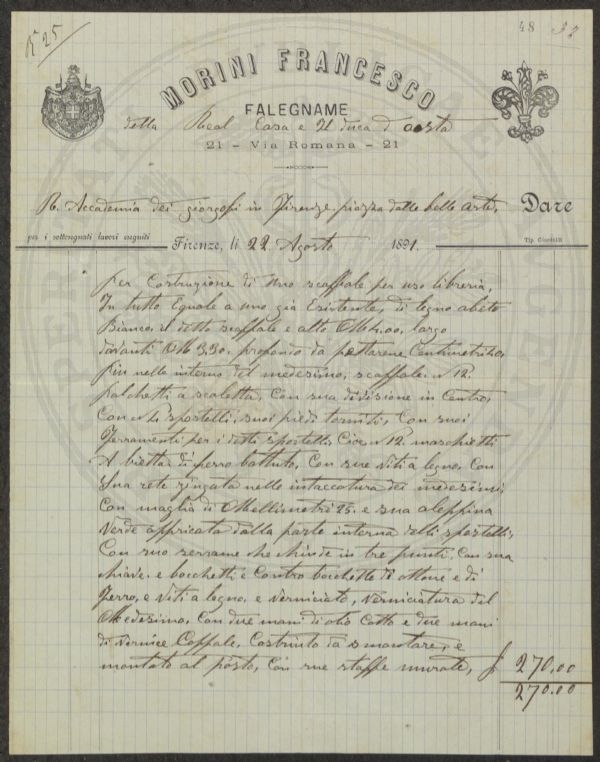 N° 25
48 32
MORINI FRANCESCO
FALEGNAME
della Real Casa e di duca d'aosta
21 - Via Romana - 21
R. Accademia dei giorgofi in Firenze piazza delle belle arte, Dare
per i sottosegnati lavori eseguiti Firenze, li 22 Agosto 1891. Tip. Ciardelli
per Costruzione di uno scaffale per uso libreria,
In tutto Equale a uno già Esistente, di legno abeto
Bianco, il detto scaffale e alto M 4.00, largo
davanti M 3.30. profondo da
Piu nelle interno del medesimo, scaffale. n 12.
palchetti a scaletta, Con sua divisione in Centro,
Con n 4 sportelli, suoi piedi torniti, Con suoi
Ferramenti per i detti sportelli, Cioe n 12. maschietti
A bietta di ferro battuto, Con sue viti a legno, Con
Sua rete zingata nelle intaccatura dei medesimi
Con maglia di Mellimetri 25. e sua aleppina
Verde appricata dalla parte interna delli sportelli,
Con suo serrame che chiude in tre punti, Con sua
chiave. e bocchetti e Contro bocchette di ottone e di
ferro, e viti a legno. e verniciato, verniciatura del
Medesimo, Con due mani di olio Cotto e due mani
di vernice Coppale, Costruito da smontare, e
montato al posto, Con sue staffe murate, £ 270.00
270.00